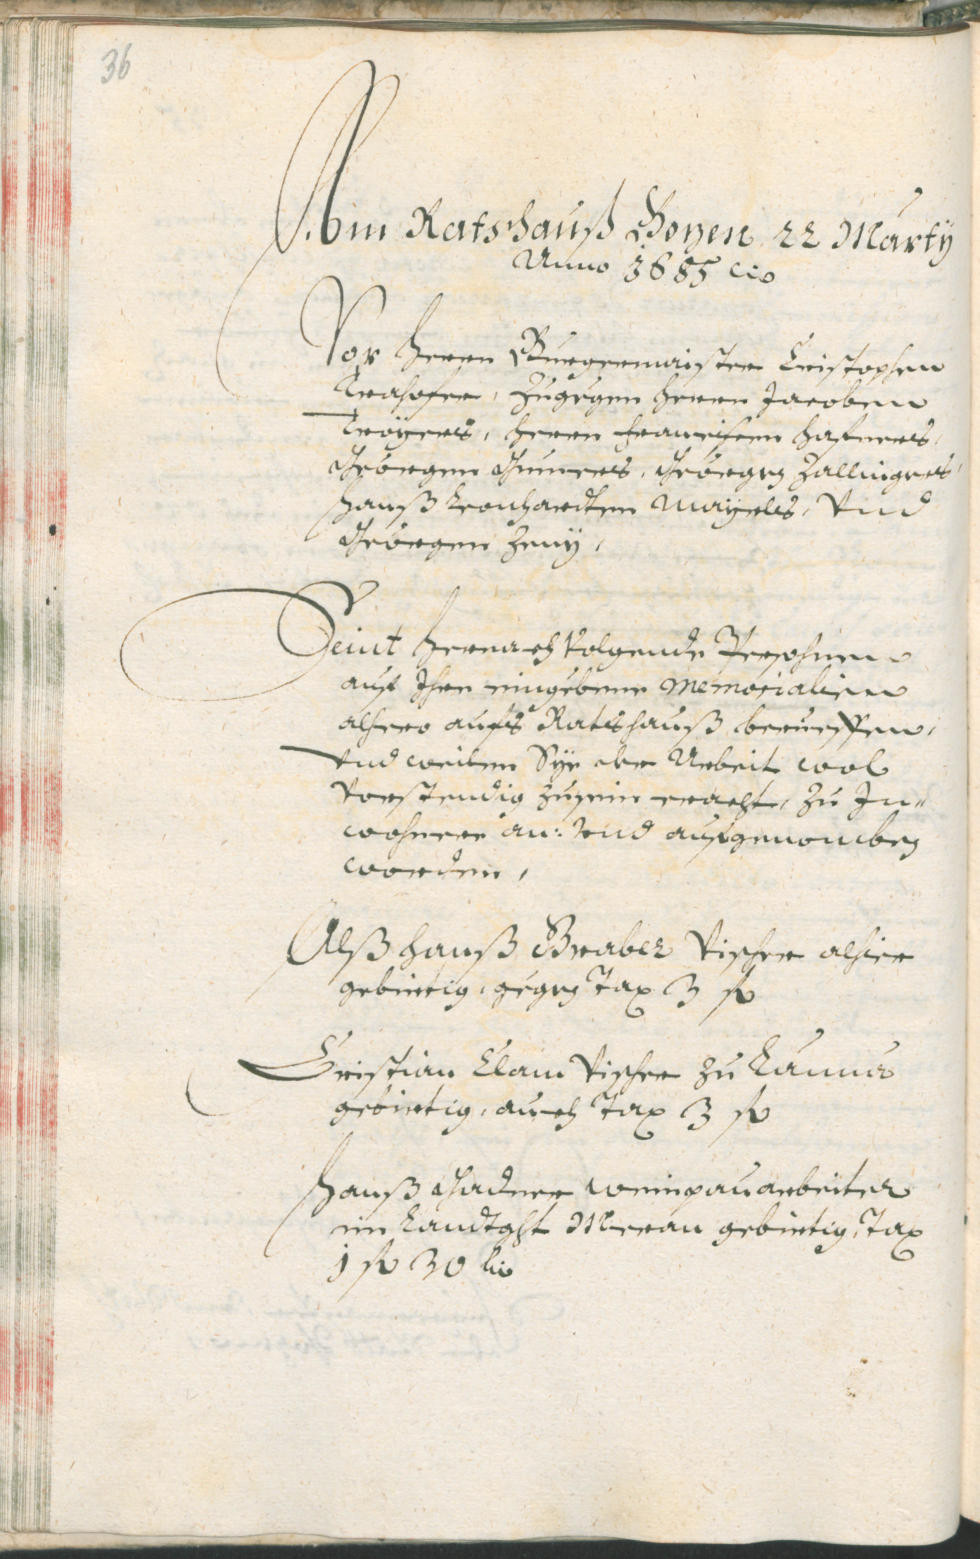 36
Am Ratshauß Bozen 22 Marty
Anno 1685 etc
Vor Herrn Burgermaister Cristophen
Trahofer, zugegen Herrn Jacoben
Troyers, Herrn Francißen Hafners,
Geörgen Gumers, Geörgen Zallingers,
Hanß Leonhardten Mayrls, Vnd
Geörgen Zeny,
Seint hernach Volgende Persohnen
auf Ihre eingebene Memorialien
alhero aufs Ratshauß berueffen,
vnd weilen Sye der Arbeit wol
Vorstendig zusein eracht, zu In-
wohner an: Vnd aufgenomben
worden,
Alß Hanß Graber Vischer alhier
gebirtig, gegen Tax 3 fl
Cristian Clam Vischer zu Launes
gebirtig, auch Tax 3 fl
Hanß Gadner Weinpauarbeiter
im Landtght Meran gebirtig, Tax
1 fl 30 kr